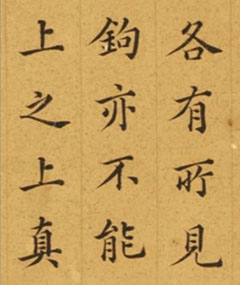 各有所見
鉤亦不能
上之上真